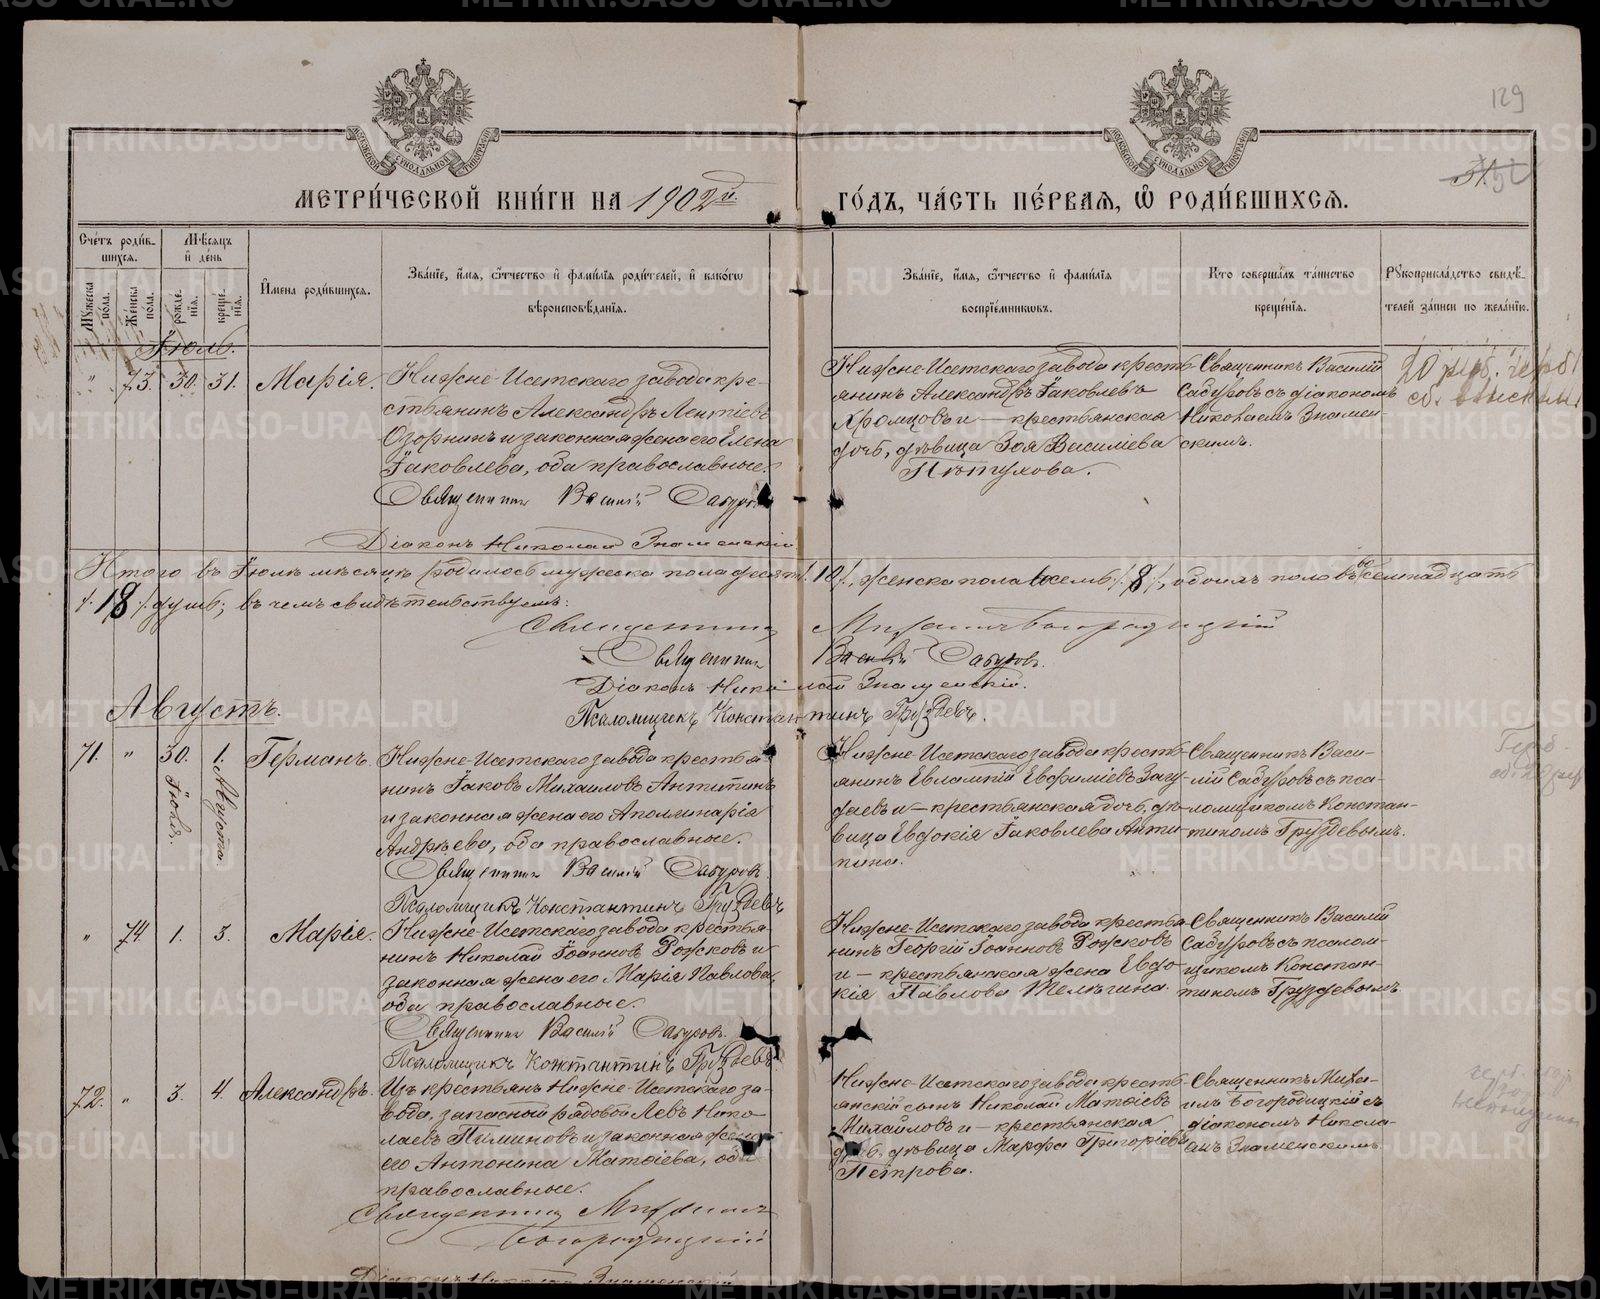 129
51. 52
МЕТРИ́ЧЕСКОЙ КНИ́ГИ НА 1902й. ГО́ДЪ, ЧА́СТЬ ПЕ́РВАЯ, Ѡ РОДИ́ВШИХСЯ.
Сче́тъ роди́вшихся.
Мꙋ́жеска пола.
Же́нска пола.
Мѣ́сяцъ и́ де́нь
рожде́нїя.
креще́нїя.
И́мена роди́вшихся.
Зва́нїе, и́мя, ѻ҆́тчество и́ фами́лїя роди́телей, и́ како́гѡ
вѣроисповѣ́данїя.
Зва́нїе, и́мя, ѻ҆́тчество и́ фами́лїя
воспрїе́мникѡвъ.
Кто̀ соверша́лъ та́инство
креще́нїя.
Рꙋкоприкла́дство свидѣ́-
телей за́писи по жела́нїю.
Іюль.
" 73. 30. 31. Марія.
Нижне-Исетскаго завода кре-
стьянинъ Александръ Леонтіевъ
Озорнинъ и законная жена его Елена
Іаковлева, оба православные.
Священникъ Василій Сабуровъ
Діаконъ Николай Знаменскій
Нижне-Исетскаго завода кресть-
янинъ Александръ Іаковлевъ
Хромцовъ и — крестьянская
дочь, дѣвица Зоя Василіева
Пѣтухова.
Священникъ Василій
Сабуровъ съ діакономъ
Николаемъ Знамен-
скимъ.
20 руб. герб.
сб. взыскан
Итого въ Іюлѣ мѣсяцѣ родилось мужеска пола десять /10/, женска пола восемь /8/, обоихъ половъ восемнадцать
/18/ душъ; въ чемъ свидѣтельствуемъ:
Священникъ Михаилъ Богородицкій
Священникъ Василій Сабуровъ.
Діаконъ Николай Знаменскій.
Псаломщикъ Константинъ Груздевъ.
Августъ.
71. " 30. Іюля. 1. Августа Германъ.
Нижне-Исетскаго завода крестья-
нинъ Іаковъ Михаиловъ Антипинъ
и законная жена его Аполлинарія
Андрѣева, оба православные.
Священникъ Василій Сабуровъ.
Псаломщикъ Константинъ Груздевъ
Нижне-Исетскаго завода кресть-
янинъ Евлампій Евфиміевъ Загу-
даевъ и — крестьянская дочь, дѣ-
вица Евдокія Іаковлева Анти-
пина.
Священникъ Васи-
лій Сабуровъ съ пса-
ломщикомъ Констан-
тиномъ Груздевымъ.
Герб.
сб. 20 руб
" 74. 1. 3. Марія.
Нижне-Исетскаго завода крестья-
нинъ Николай Іоанновъ Рожковъ и
законная жена его Марія Павлова,
оба православные.
Священникъ Василій Сабуровъ.
Псаломщикъ Константинъ Груздевъ
Нижне-Исетскаго завода крестья-
нинъ Георгій Іоанновъ Рожковъ
и — крестьянская жена Евдо-
кія Павлова Телѣгина.
Священникъ Василій
Сабуровъ съ псалом-
щикомъ Констан-
тиномъ Груздевымъ.
72. " 3. 4. Александръ.
Изъ крестьянъ Нижне-Исетскаго за-
вода, запасный рядовой Левъ Нико-
лаевъ Пиминовъ и законная жена
его Антонина Матѳіева, оба
православные.
Священникъ Михаилъ
Богородицкій
Діаконъ Николай Знаменскій
Нижне-Исетскаго завода кресть-
янскій сынъ Николай Матѳіевъ
Михайловъ и — крестьянская
дочь, дѣвица Марѳа Григоріева
Петрова.
Священникъ Миха-
илъ Богородицкій съ
діакономъ Никола-
емъ Знаменскимъ
METRIKI.GASO-URAL.RU